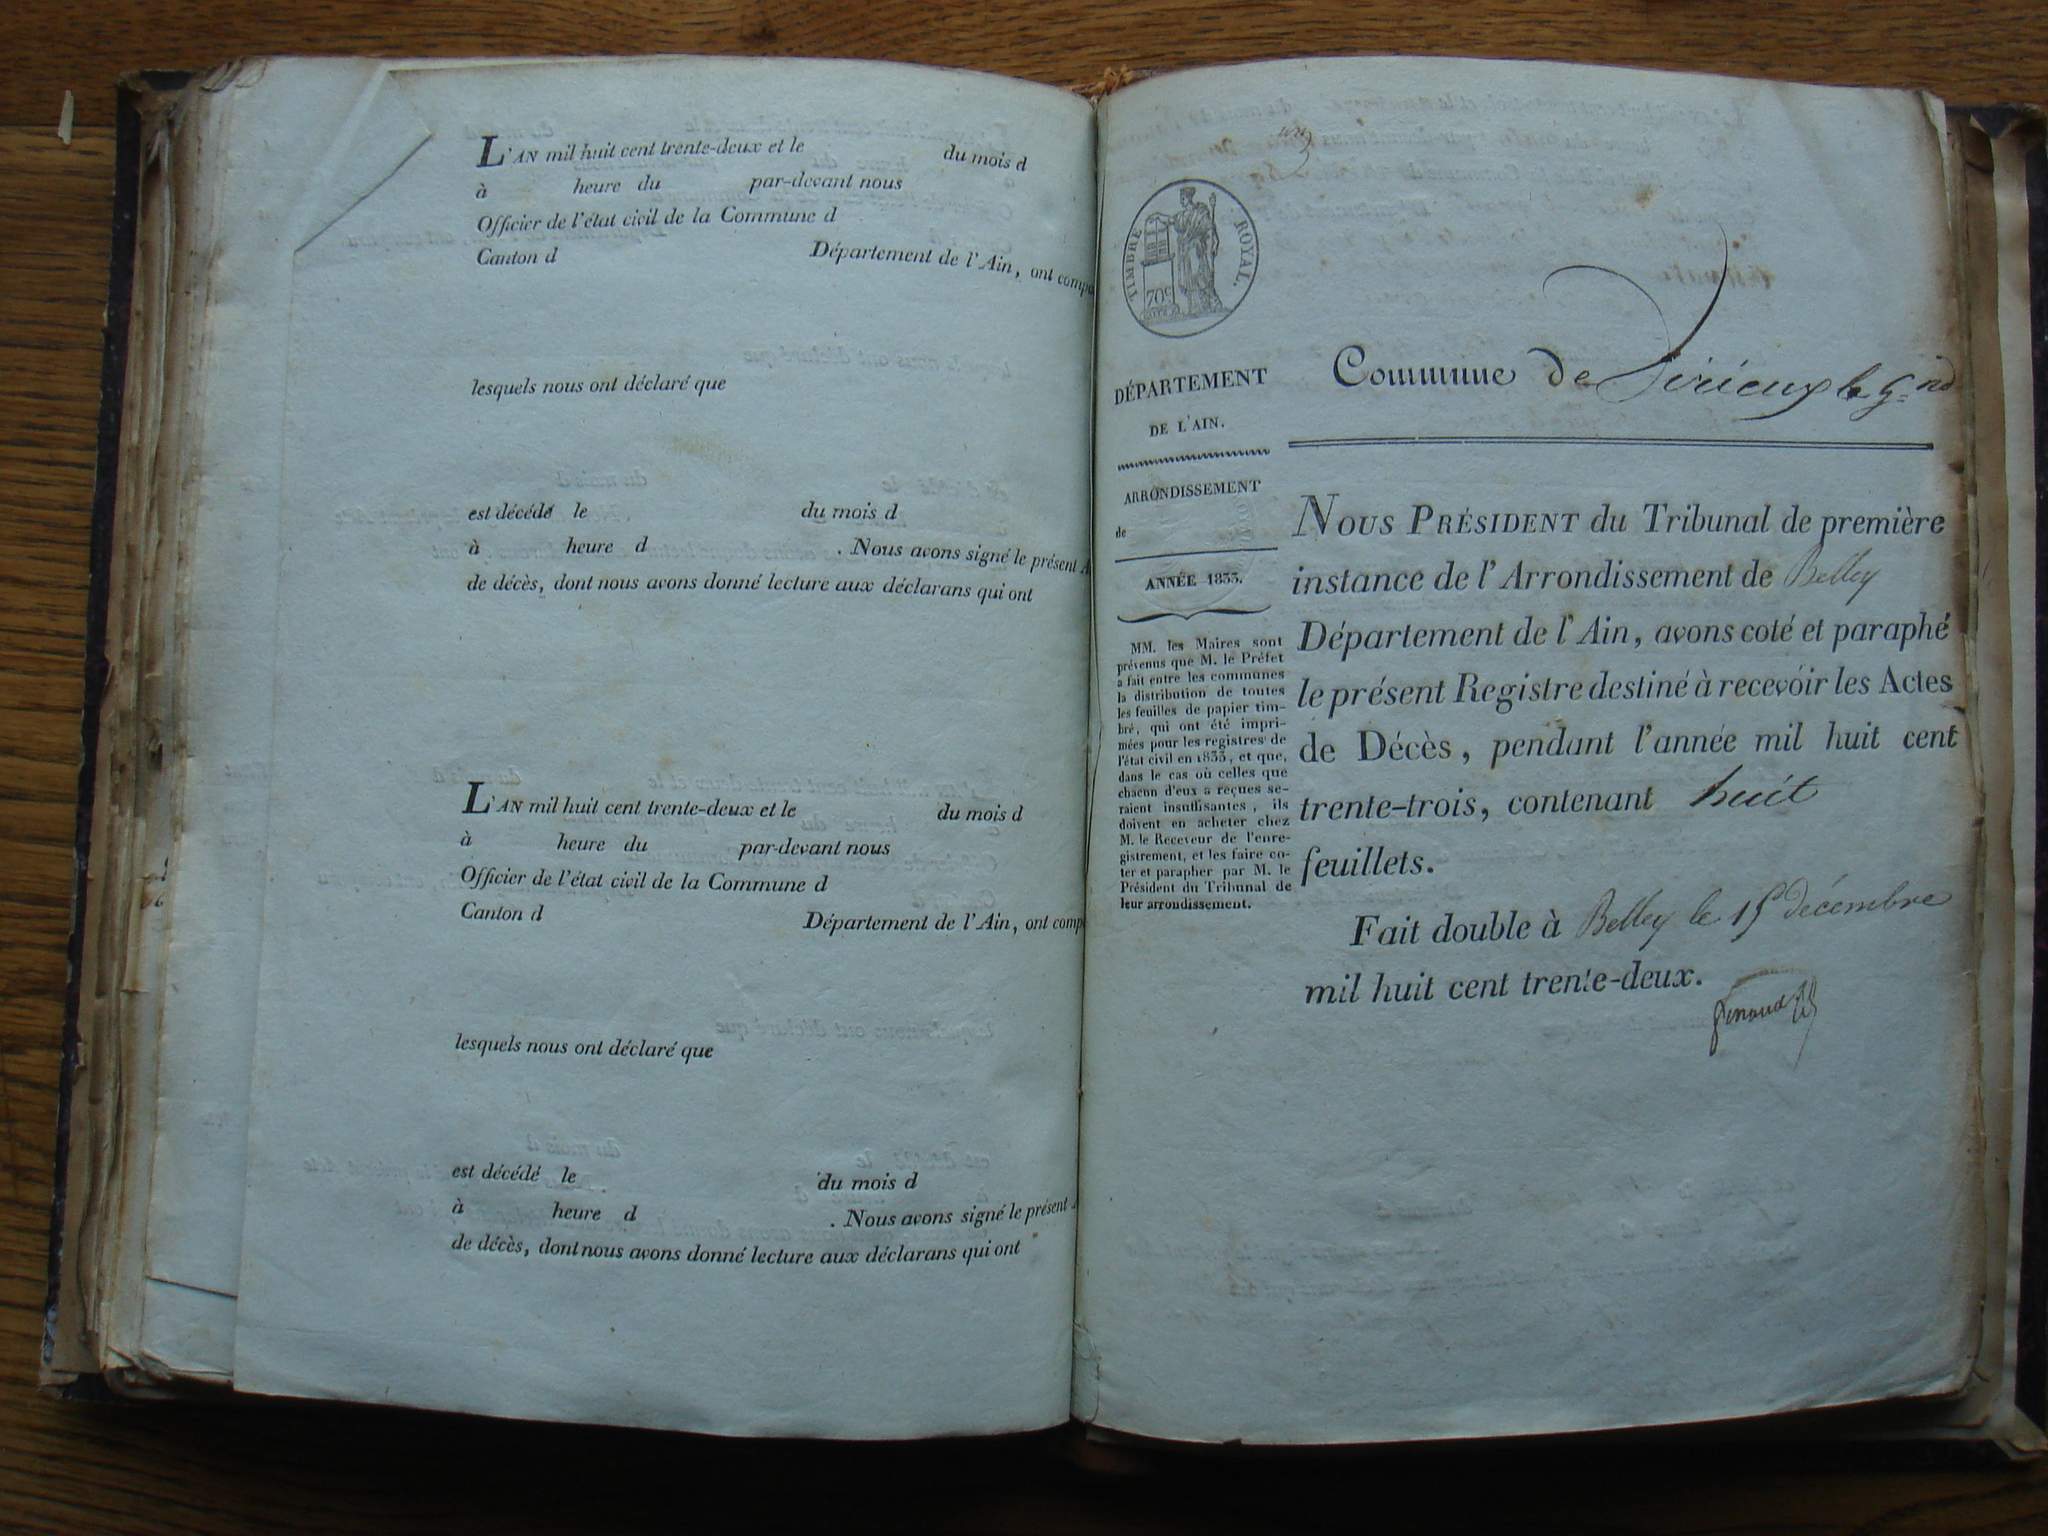 L'AN mil huit cent trente-deux et le du mois d
à heure du par-devant nous
Officier de l'état civil de la Commune d
Canton d Département de l'Ain, ont compa
lesquels nous ont déclaré que
est décédé le du mois d
à heure d . Nous avons signé le présent A
de décès, dont nous avons donné lecture aux déclarans qui ont
L'AN mil huit cent trente-deux et le du mois d
à heure du par-devant nous
Officier de l'état civil de la Commune d
Canton d Département de l'Ain, ont comp
lesquels nous ont déclaré que
est décédé le du mois d
à heure d . Nous avons signé le présent
de décès, dont nous avons donné lecture aux déclarans qui ont
TIMBRE ROYAL.
70c
DÉPARTEMENT
DE L'AIN.
ARRONDISSEMENT
de
ANNÉE 1833.
MM. les Maires sont
prévenus que M. le Préfet
a fait entre les communes
la distribution de toutes
les feuilles de papier tim-
bré, qui ont été impri-
mées pour les registres de
l'état civil en 1833, et que,
dans le cas où celles que
chacun d'eux a reçues se-
raient insuffisantes, ils
doivent en acheter chez
M. le Receveur de l'enre-
gistrement, et les faire co-
ter et parapher par M. le
Président du Tribunal de
leur arrondissement.
Commune de Virieux le Gnd
NOUS PRÉSIDENT du Tribunal de première
instance de l'Arrondissement de Belley
Département de l'Ain, avons coté et paraphé
le présent Registre destiné à recevoir les Actes
de Décès, pendant l'année mil huit cent
trente-trois, contenant huit
feuillets.
Fait double à Belley le 15 décembre
mil huit cent trente-deux.